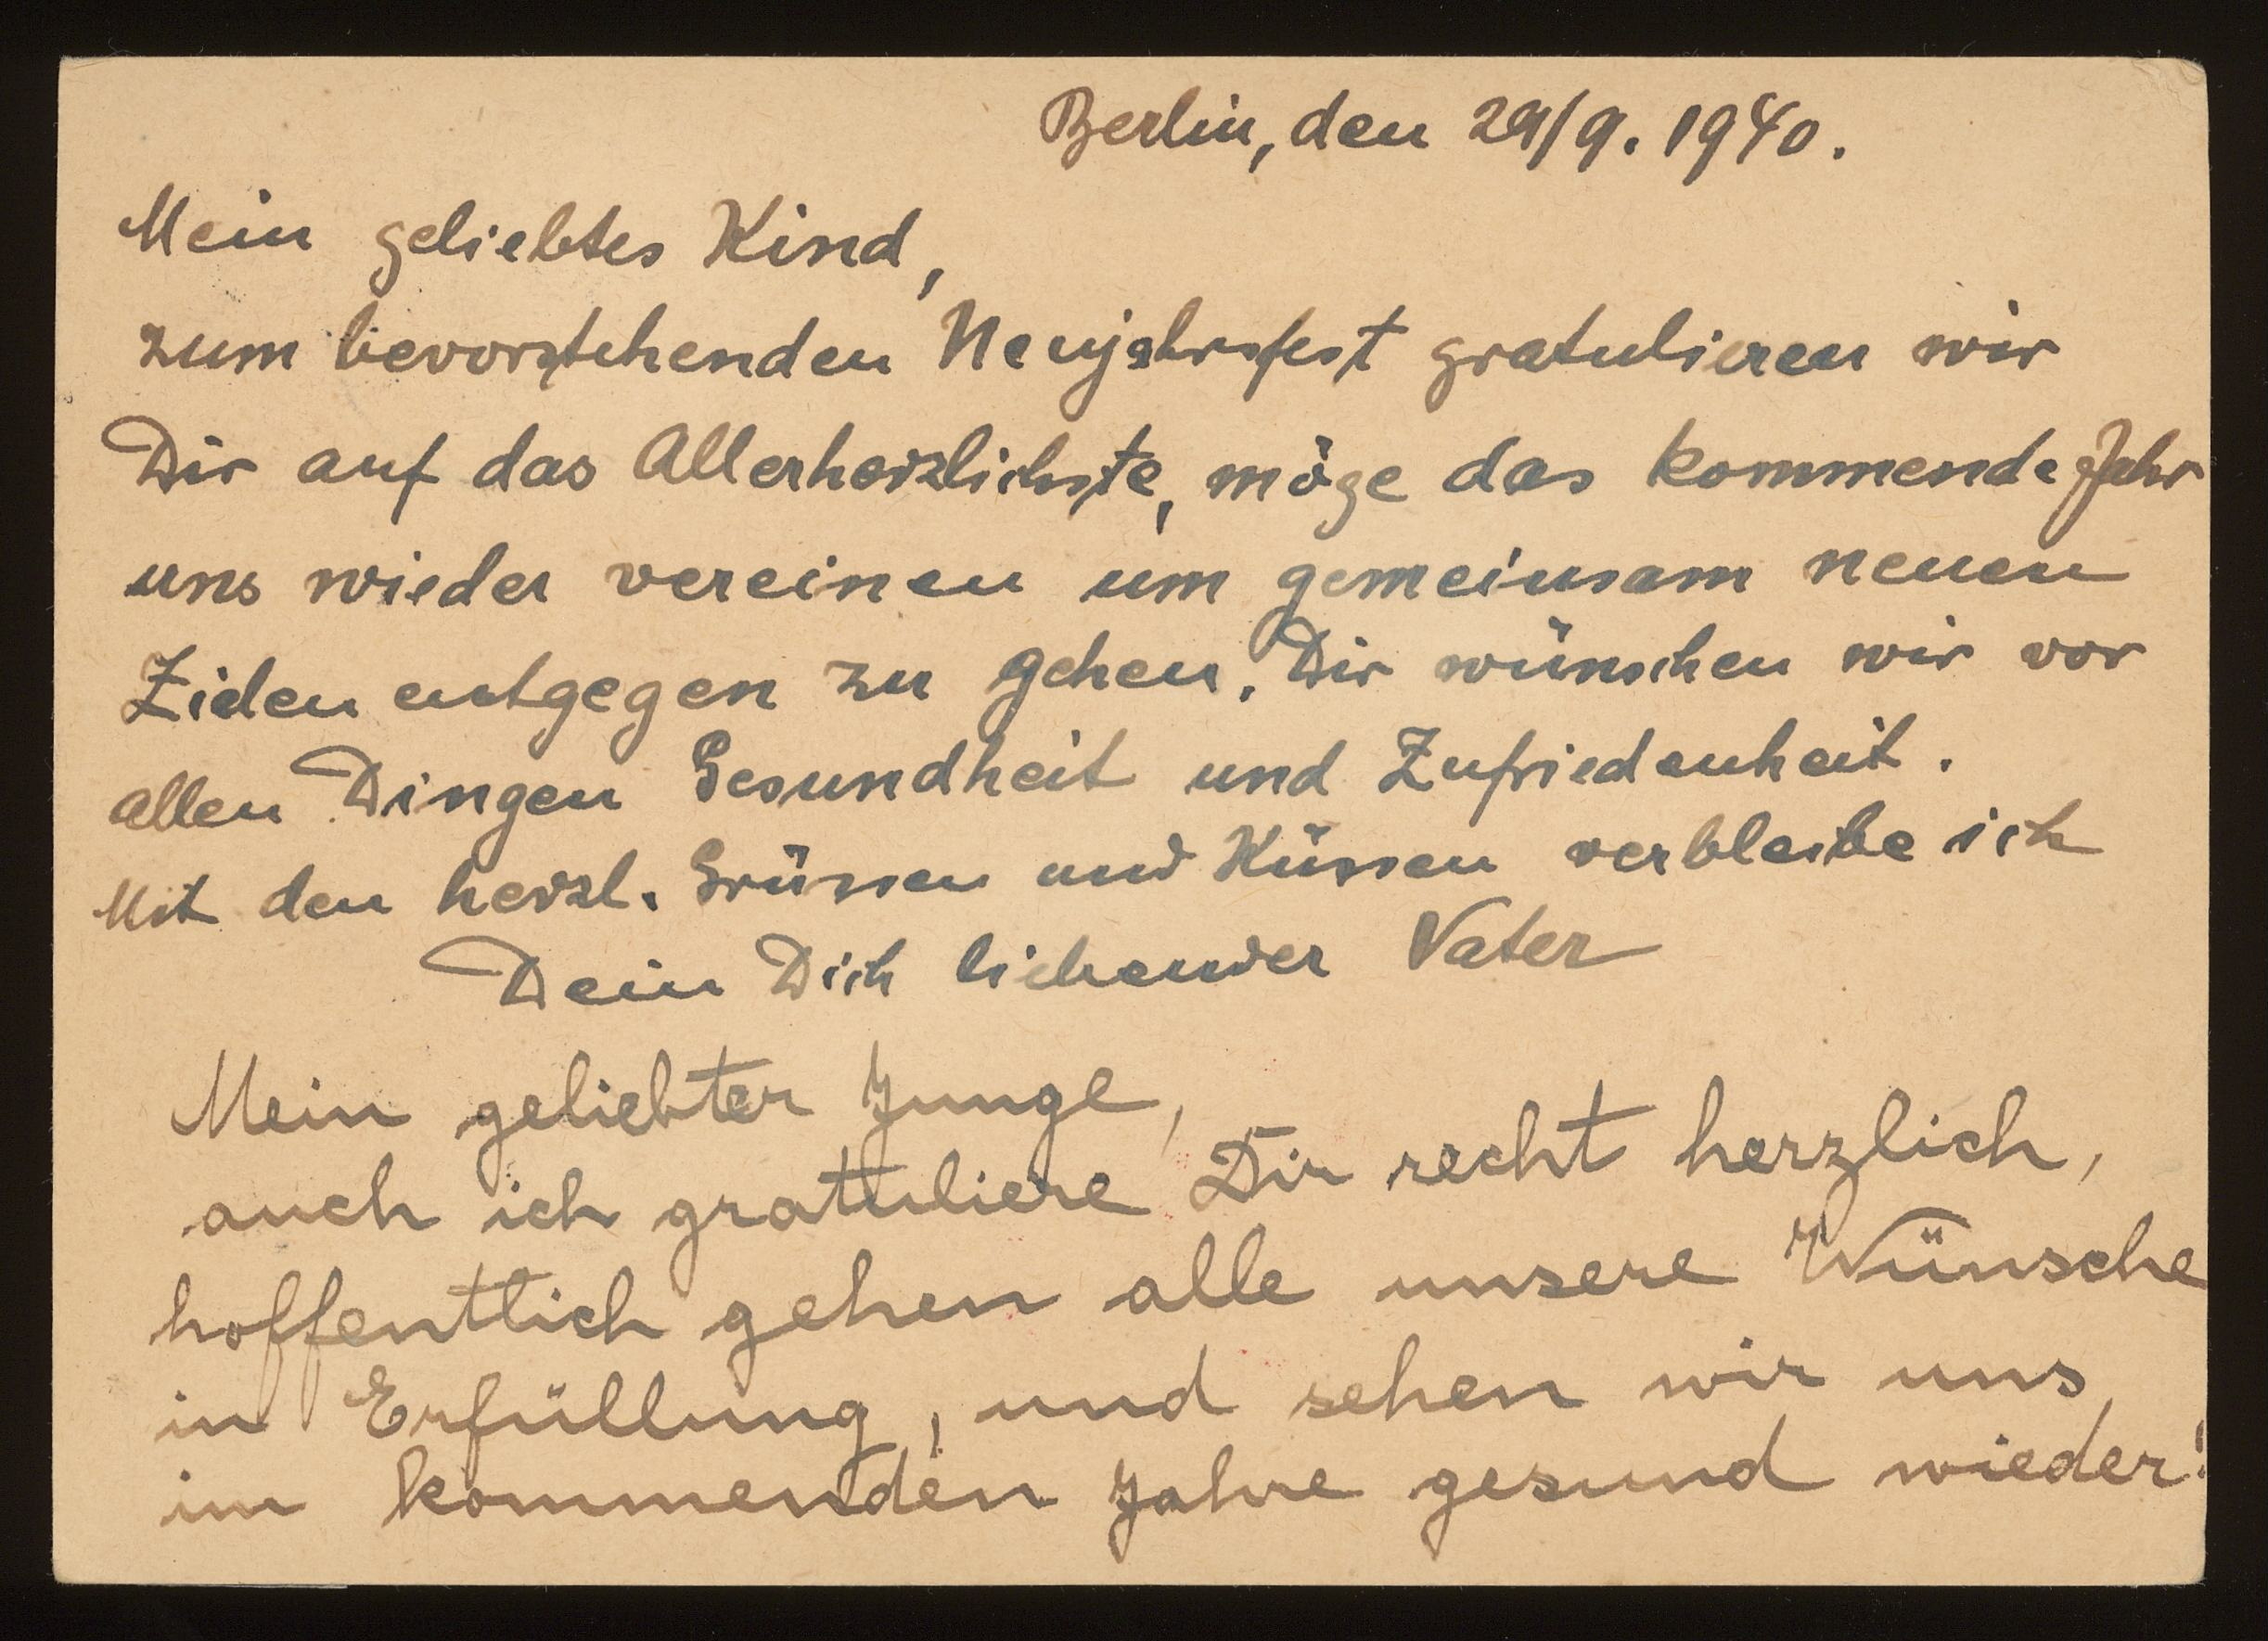 Berlin, den 29/9. 1940.
Mein geliebtes Kind,
zum bevorstehenden Neujahrsfest gratulieren wir
Dir auf das Allerherzlichste, möge das kommende Jahr
uns wieder vereinen um gemeinsam neuen
Zielen entgegen zu gehen. Dir wünschen wir vor
allen Dingen Gesundheit und Zufriedenheit.
Mit den herzl. Grüssen und Küssen verbleibe ich
Dein Dich liebender Vater
Mein geliebter Junge,
auch ich gratuliere Dir recht herzlich,
hoffentlich gehen alle unsere Wünsche
in Erfüllung, und sehen wir uns
im kommenden Jahre gesund wieder!